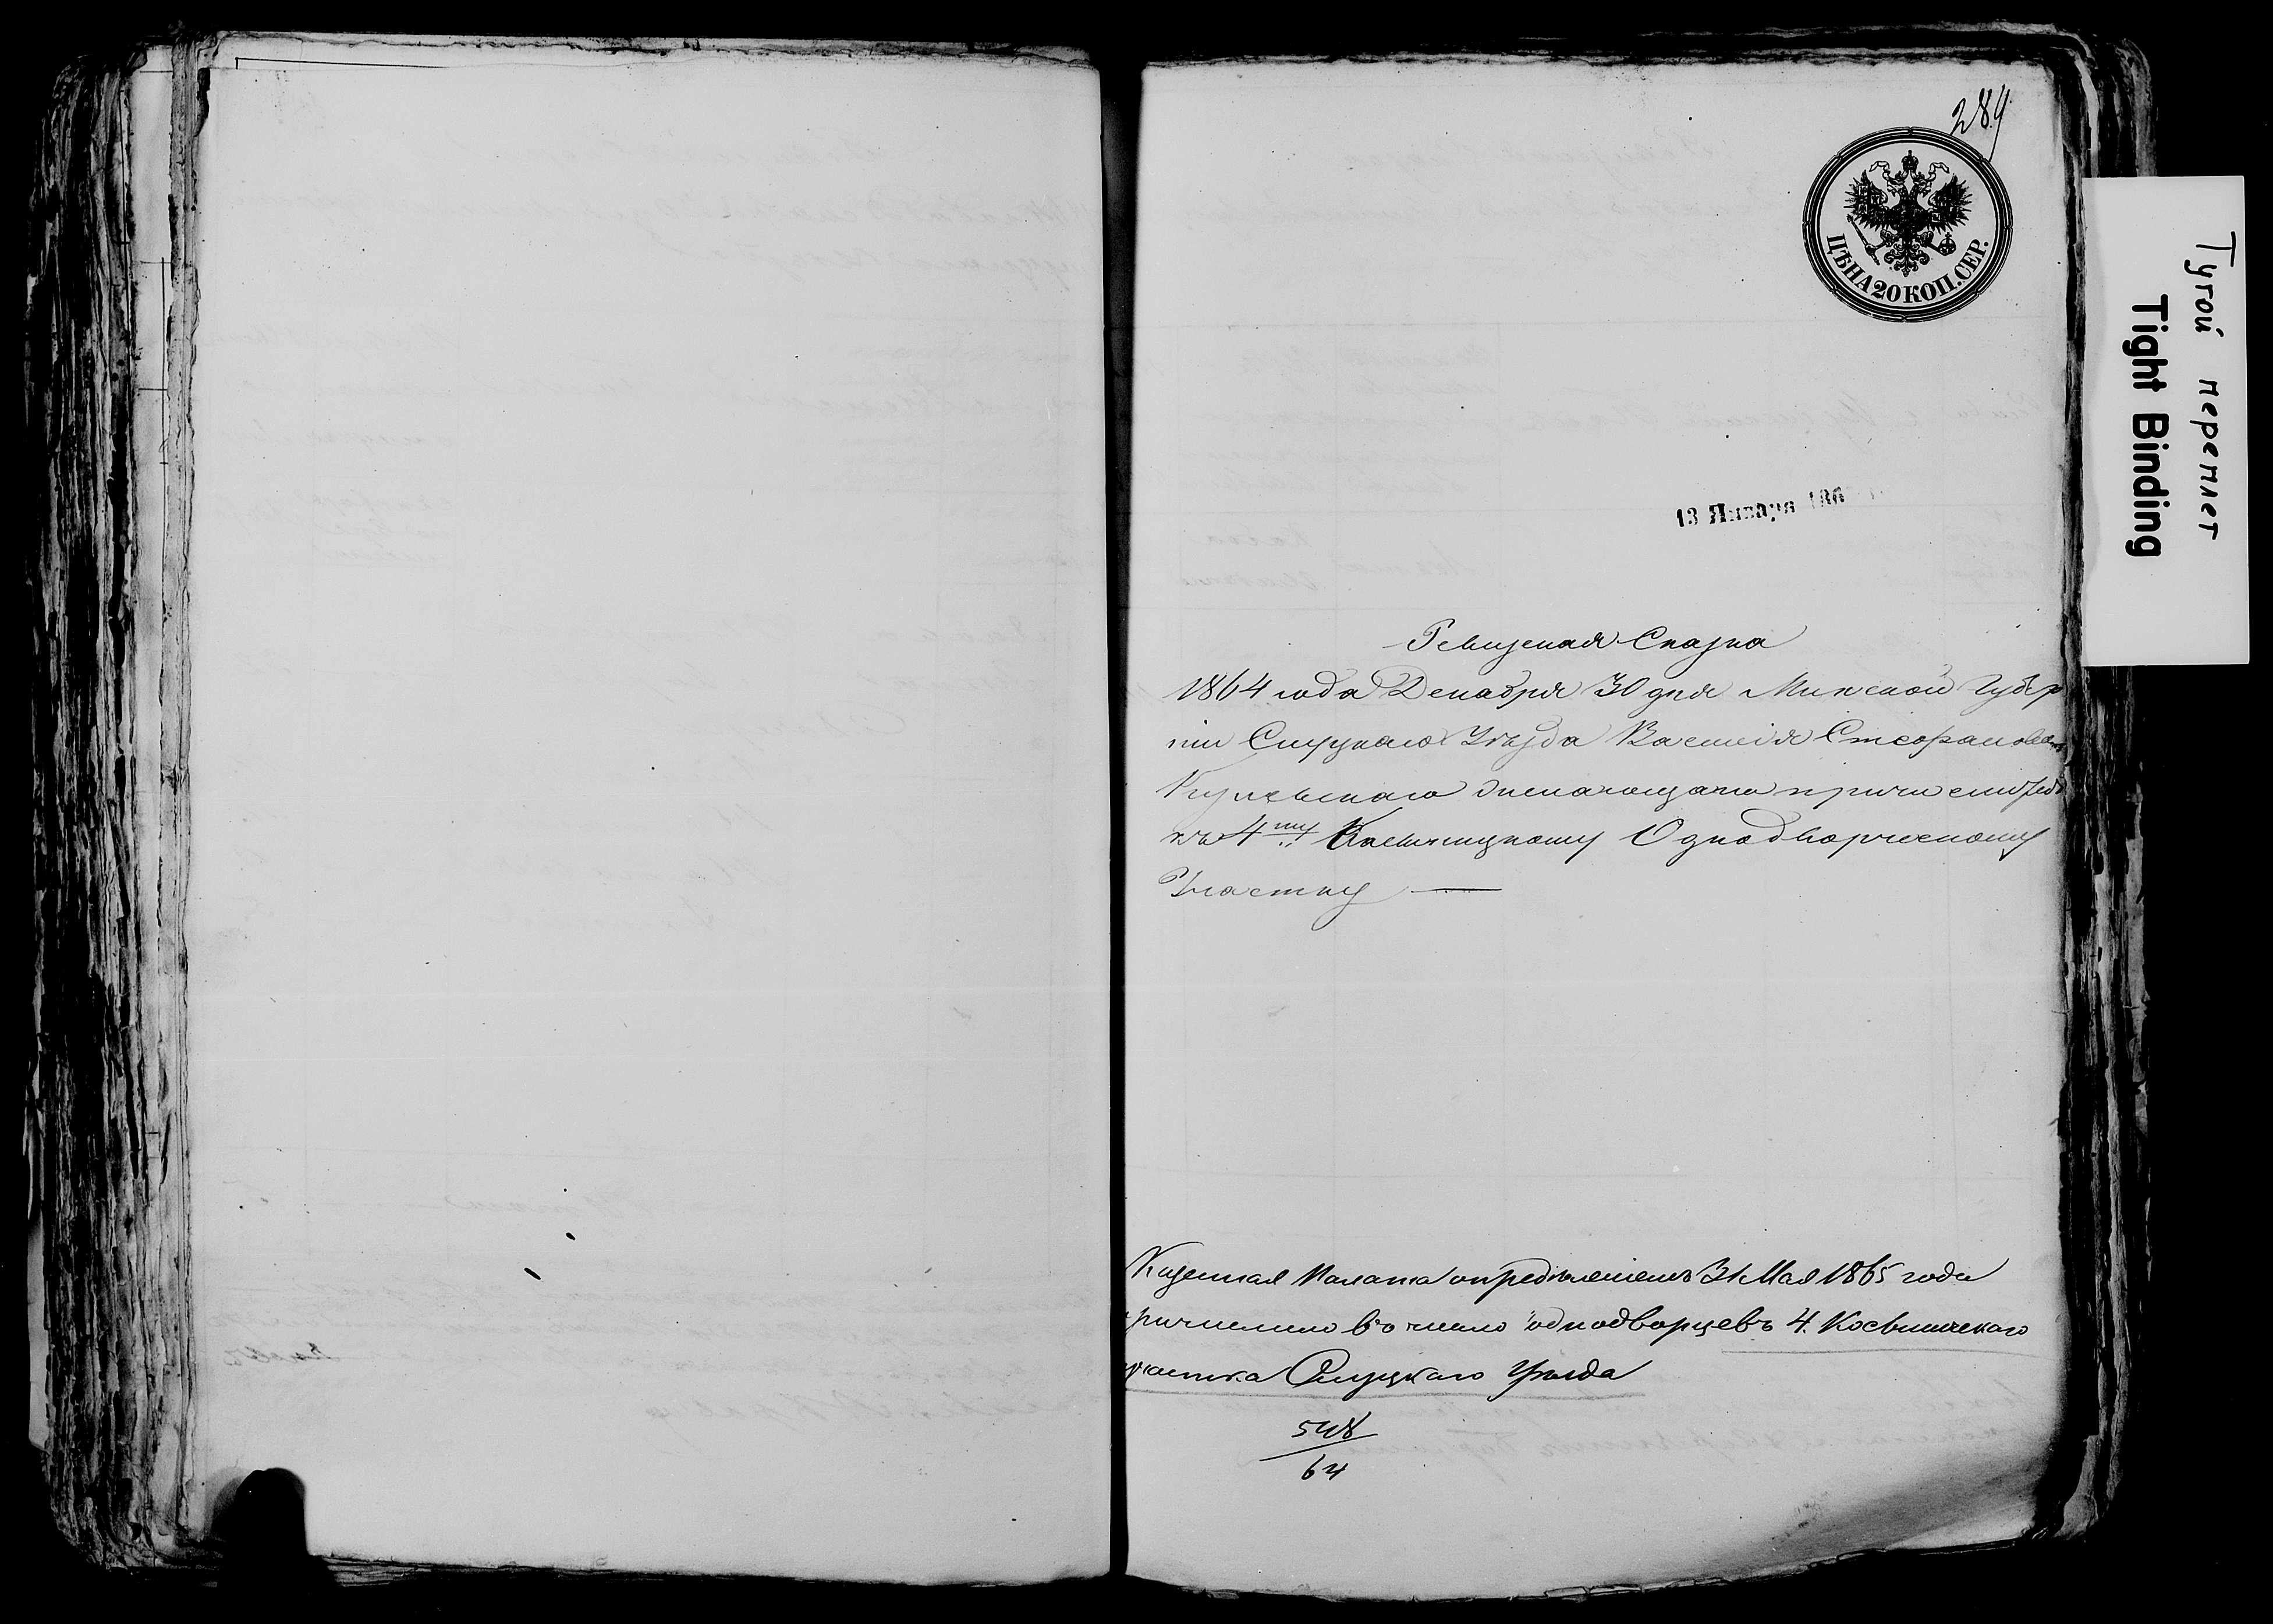 289
ЦѢНА 20 КОП. СЕР.
Тугой переплет
Tight Binding
13 Января 186
Ревизская Сказка
1864 года Декабря 30 дня Минской Губер
ніи Слуцкаго Уѣзда Василія Стефанова
желающаго
къ 4му Однодворческому
Участку
Казенная Палата опредѣленіемъ 31 Мая 1865 года
причислено въ число однодворцевъ 4.
участка Слуцкаго Уѣзда
548
64